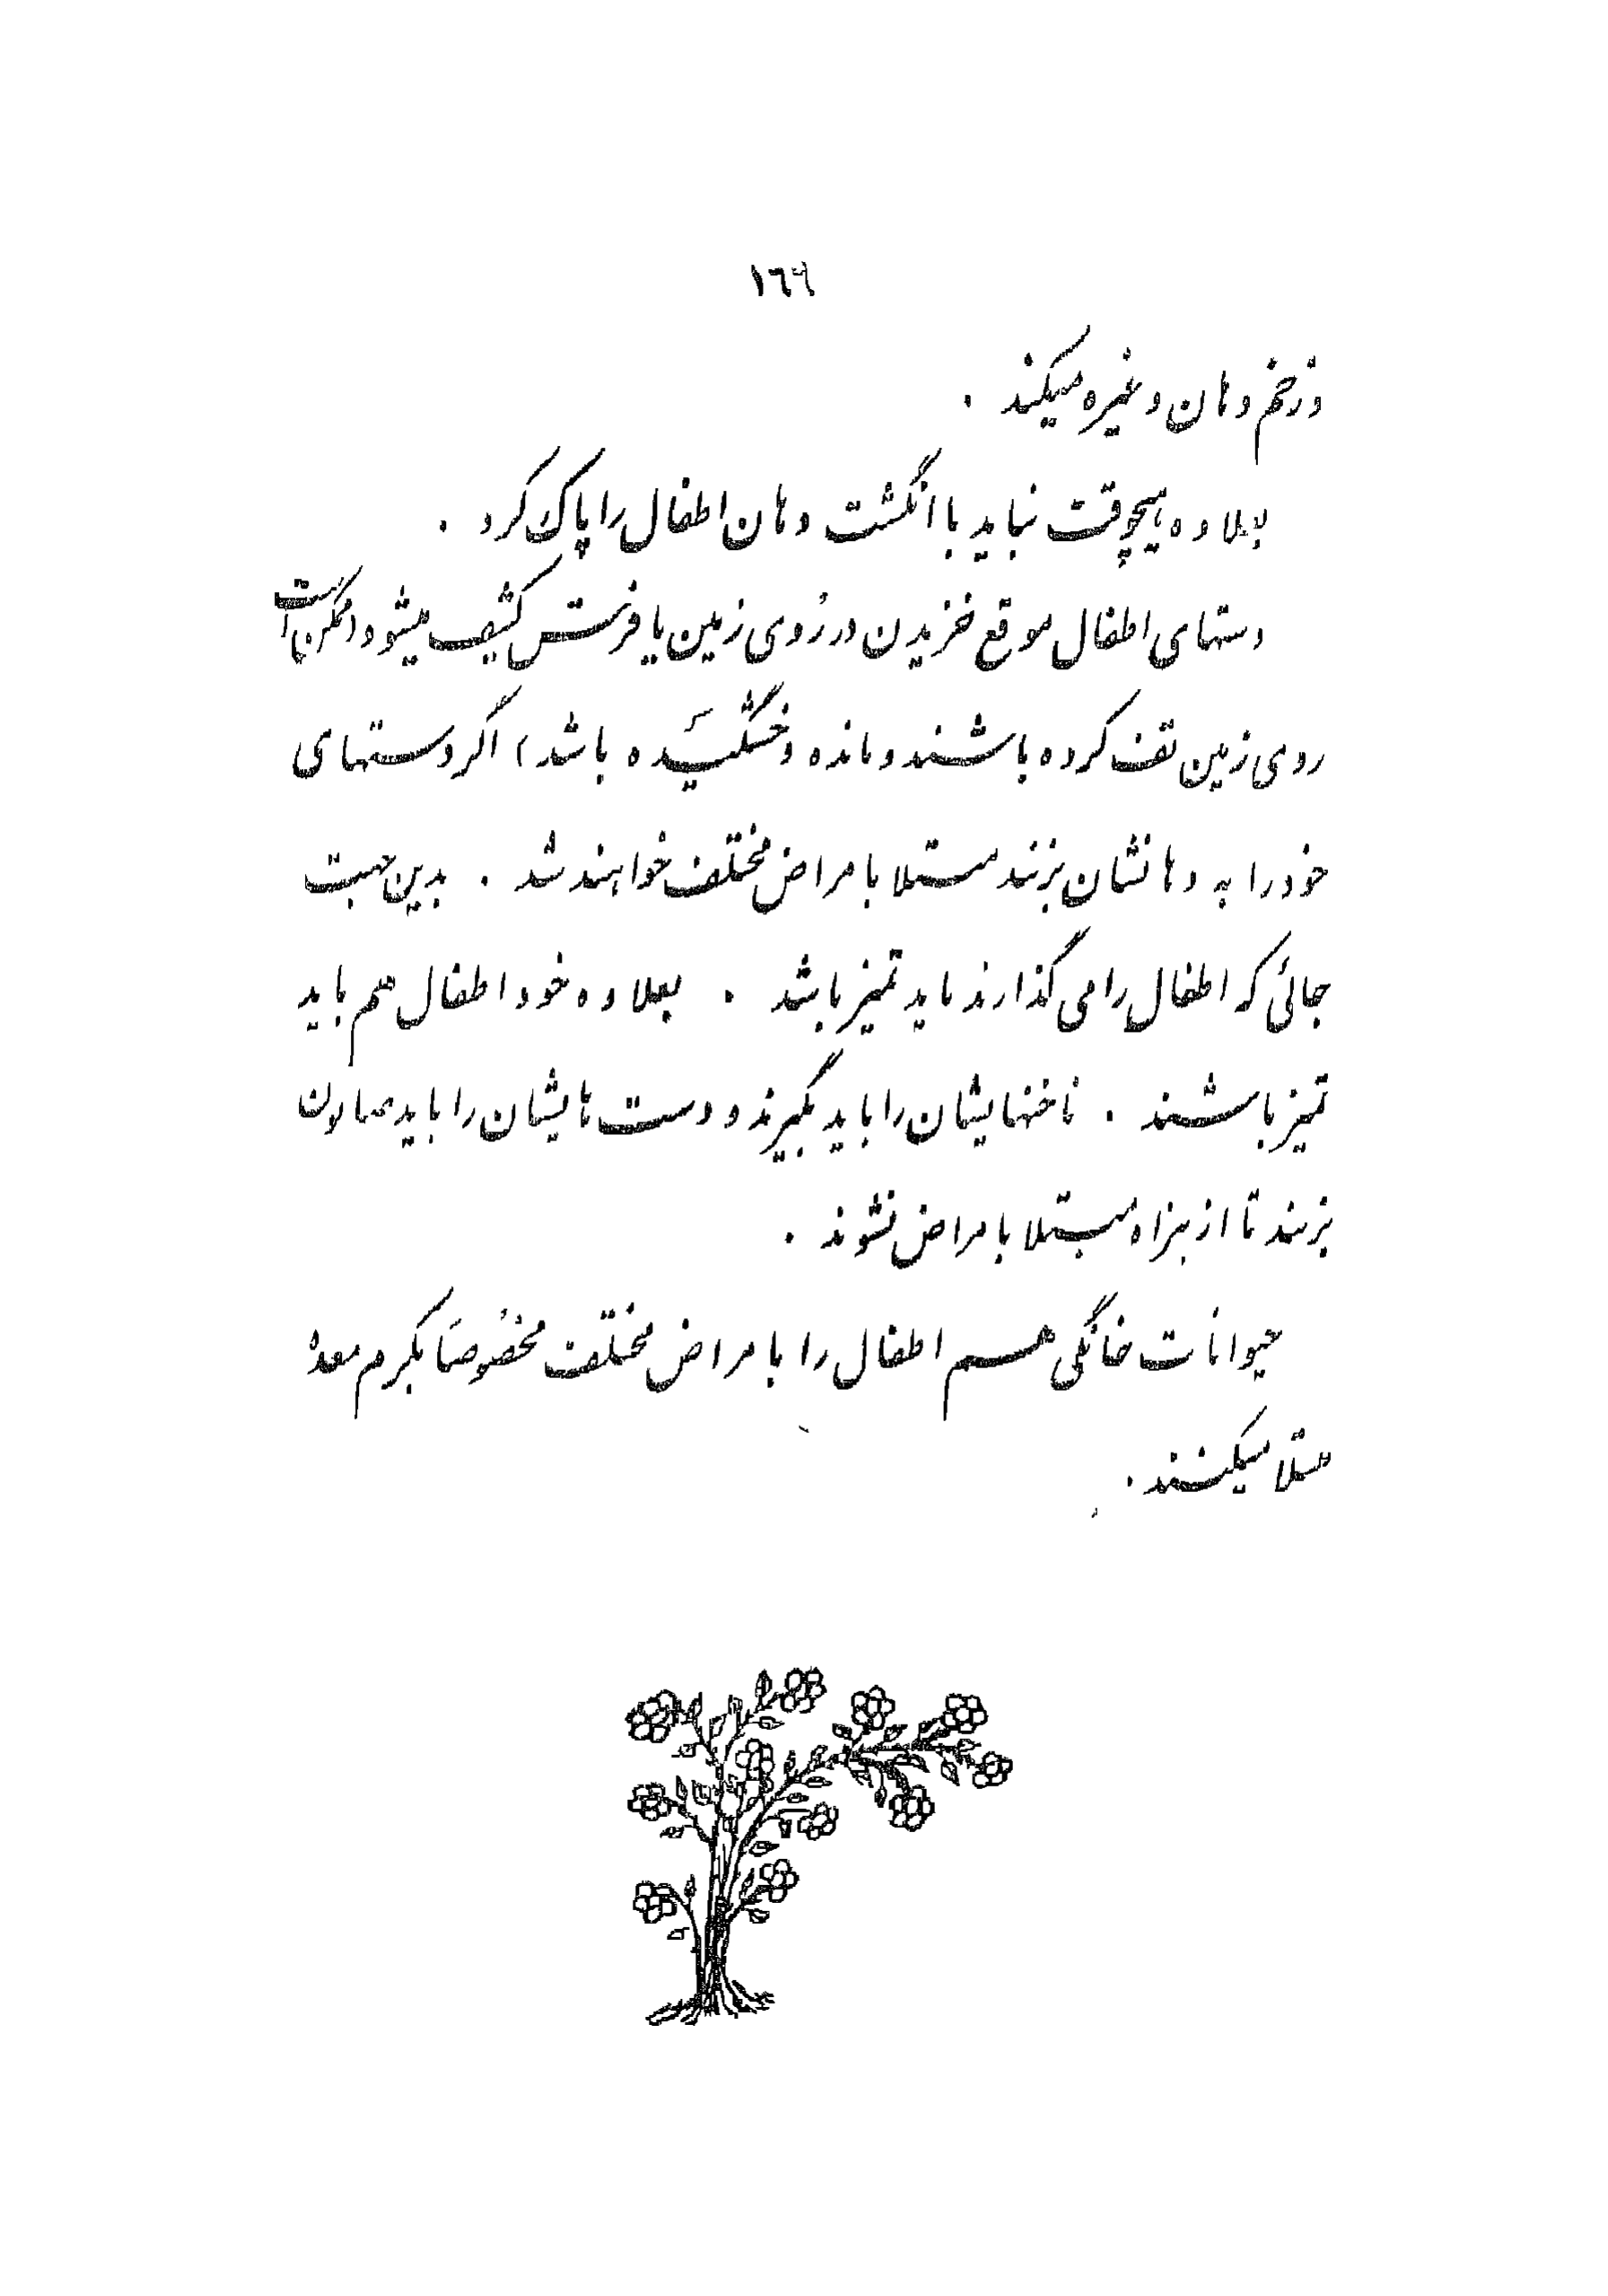 ١٦٩
و زخم دهان و غیره میکند .
بعلاوه هیچوقت نباید با انگشت دهان اطفال را پاک کرد .
دستهای اطفال موقع خزیدن در روی زمین یا فرش کثیف میشود (ممکن است
روی زمین تف کرده باشند و مانده و خشکیده باشد) اگر دستهای
خود را به دهانشان بزنند مبتلا بامراض مختلف خواهند شد . بدین جهت
جائی که اطفال را می گذارند باید تمیز باشد . بعلاوه خود اطفال هم باید
تمیز باشند . ناخنهایشان را باید بگیرند و دست هایشان را باید صابون
بزنند تا از این راه مبتلا بامراض نشوند .
حیوانات خانگی هم اطفال را بامراض مختلف مخصوصاً بکرم معده
مبتلا میکنند .